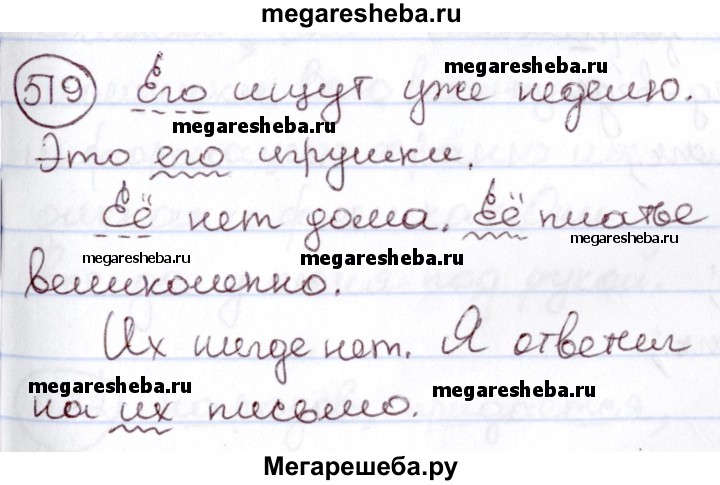 megaresheba.ru
519 Его ищут уже неделю.
megaresheba.ru
megaresheba.ru
Это его игрушки.
Её нет дома. Её платье
megaresheba.ru
megaresheba.ru
великолепно.
Их нигде нет. Я ответил
megaresheba.ru
megaresheba.ru
на их письмо.
Мегарешеба.ру